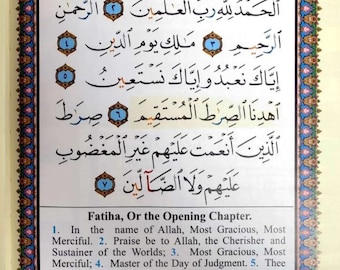 الْحَمْدُ لِلَّهِ رَبِّ الْعَالَمِينَ ٢ الرَّحْمَٰنِ
الرَّحِيمِ ٣ مَالِكِ يَوْمِ الدِّينِ ٤
إِيَّاكَ نَعْبُدُ وَإِيَّاكَ نَسْتَعِينُ ٥
اهْدِنَا الصِّرَاطَ الْمُسْتَقِيمَ ٦ صِرَاطَ
الَّذِينَ أَنْعَمْتَ عَلَيْهِمْ غَيْرِ الْمَغْضُوبِ
عَلَيْهِمْ وَلَا الضَّالِّينَ ٧
Fatiha, Or the Opening Chapter.
1. In the name of Allah, Most Gracious, Most
Merciful. 2. Praise be to Allah, the Cherisher and
Sustainer of the Worlds; 3. Most Gracious, Most
Merciful; 4. Master of the Day of Judgment. 5. Thee